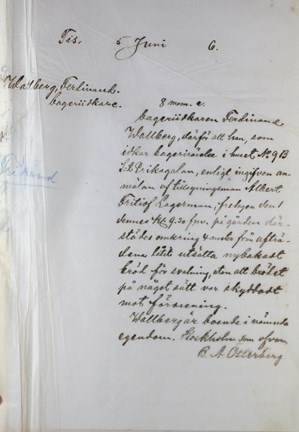 Tis. 5 Juni 6.
Wallberg, Ferdinand,
bageriidkare.
8 mom. c.
bageriidkaren Ferdinand
Wallberg, därför att han, som
idkar bagerirörelse i huset № 9 B
S:t Eriksgatan, enligt ingifven an-
mälan af tillsyningsman Albert
Fritiof Lagerman, fredagen den 1
dennes kl. 9.20 fm. på gården där-
städes omkring 4 meter från afträ-
dena låtit utsätta nybakadt
bröd för svalning, utan att brödet
på något sätt var skyddadt
mot förorening.
Wallberg är boende i nämnda
egendom. Stockholm som ofvan
B. A. Otterberg